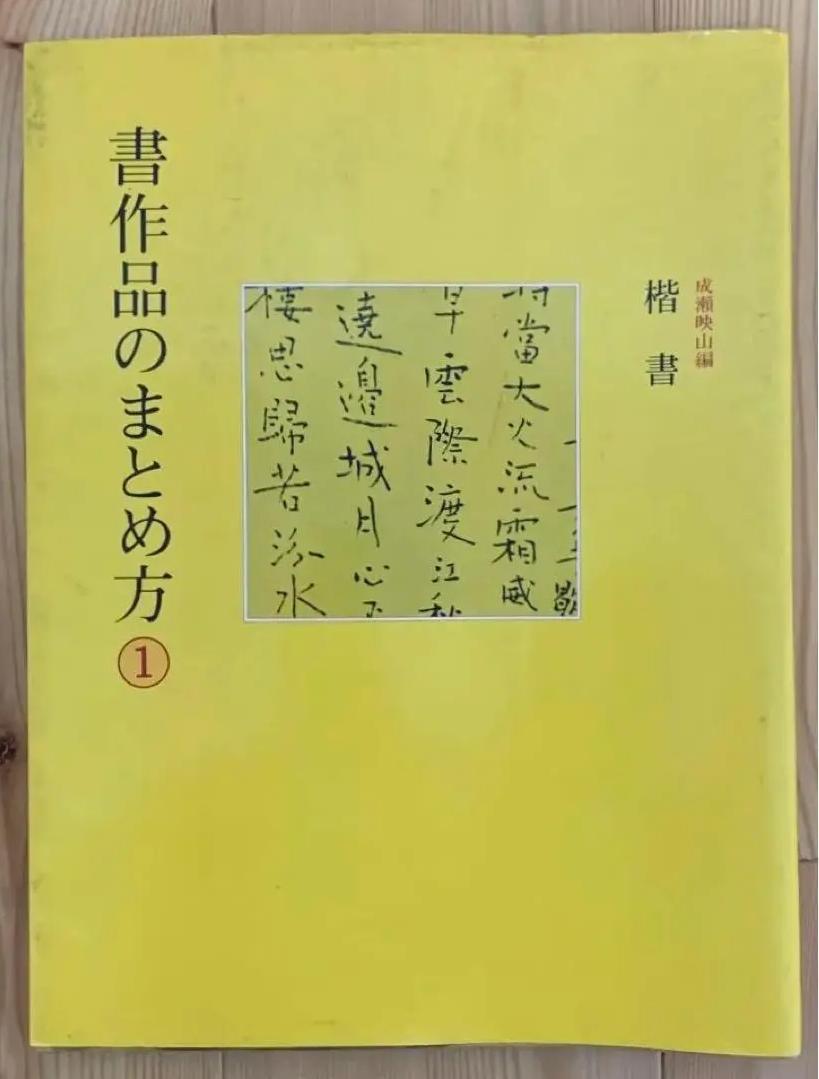 成瀬映山編
楷書
當大火流霜威
雲際渡江秋
遶邉城月心
棲思歸若汾水
書作品のまとめ方①